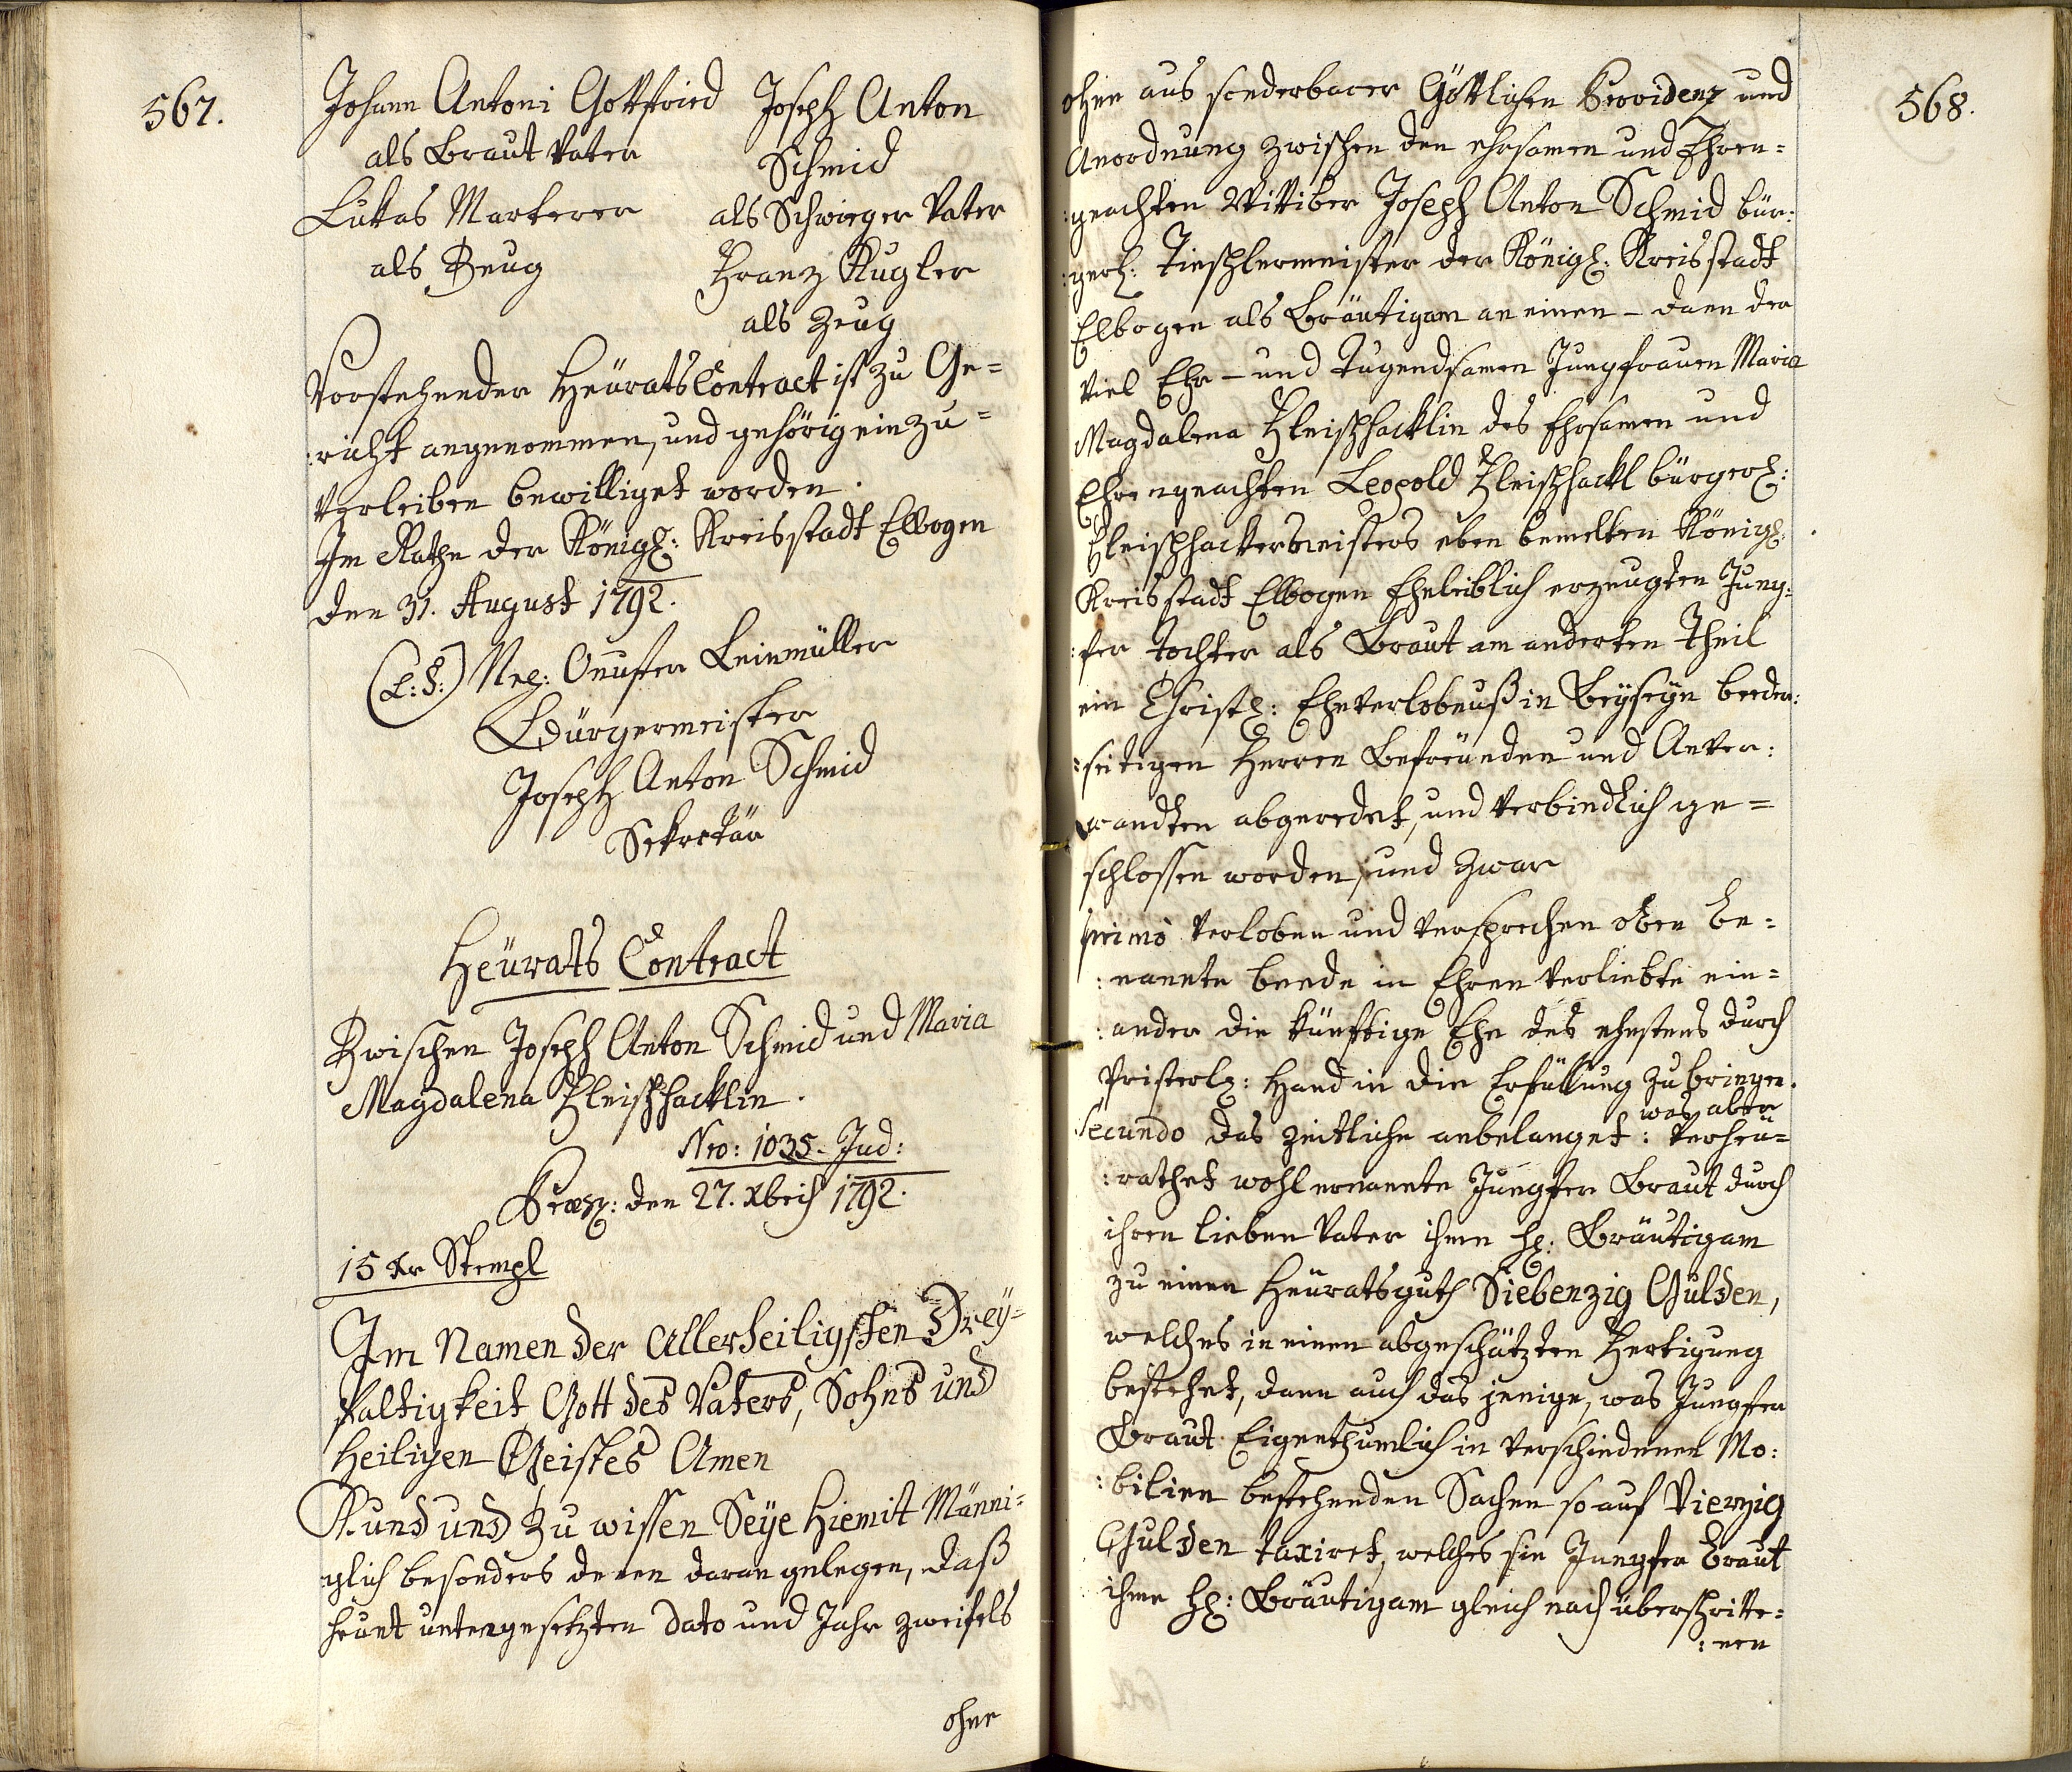 567.
Johann Antoni Gottfried
als Braut Vater
Lukas Markerer
als Zeug
Joseph Anton
Schmid
als Schwieger Vater
Franz Kugler
als Zeug
Vorstehender Heürats Contract ist zu Ge=
:richt angenommen, und gehörig einzu=
verleiben bewilliget worden.
Im Rathe der Königl: Kreisstadt Elbogen
den 31. August 1792.
(L:S:) Leinmüller
Bürgermeister
Joseph Anton Schmid
Sekretär
Heürats Contract
Zwischen Joseph Anton Schmid und Maria
Magdalena Fleischhacklin.
Nro: 1035. Jud:
Præs: den 27. Xbris 1792.
15 Xr Stempl
Im Namen der Allerheiligsten Drey=
faltigkeit Gott des Vaters, Sohns und
Heiligen Geistes Amen
Kund und Zu wissen Seye hiemit Männi=
glich besonders denen daran gelegen, daß
heunt untengesetzten dato und Jahr zweifels
ohne
568.
ohne aus sonderbarer Göttlichen Providenz und
Anordnung zwischen den ehrsamen und Ehren=
:geachten Wittiber Joseph Anton Schmid bür:
:gerl: Tischlermeister der Königl: Kreisstadt
Elbogen als Bräutigam an einen - dann der
Viel Ehr- und Tugendsamen Jungfrauen Maria
Magdalena Fleischhacklin des Ehrsamen und
Ehrengeachten Leopold Fleischhackl bürgerl:
Fleischhackermeisters eben bemelten Königl:
Kreisstadt Elbogen Eheleiblich erzeugten Jung:
:fer Tochter als Braut am anderten Theil
ein Christl: Eheverlobnuß in Beyseyn beeder:
:seitigen Herren Befreunden und Anver:
wandten abgeredet, und verbindlich ge=
schlossen worden, und zwar
Primo verloben und versprechen oben be=
:nannte beede in Ehren verliebte ein=
:ander die künftige Ehe des ehestens durch
Pristerl: Hand in die Erfüllung zu bringen.
was aber
Secundo das zeitliche anbelanget: verheu=
:rathet wohl ernannte Jungfer Braut durch
ihren lieben Vater ihme H: Bräutigam
zu einen Heüratsguth Siebenzig Gulden,
welches in einen abgeschätzten Fertigung
bestehet, dann auch das jenige, was Jungfer
Braut Eigenthumlich in verschiedenen Mo:
:bilien bestehenden Sachen so auf Vierzig
Gulden taxiret, welches sie Jungfer Braut
ihme H: Bräutigam gleich nach überschritte=
:nen